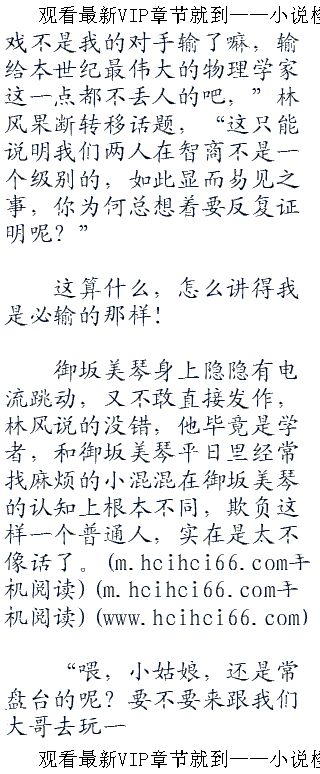 观看最新VIP章节就到——小说检
戏不是我的对手输了嘛，输
给本世纪最伟大的物理学家
这一点都不丢人的吧，”林
风果断转移话题，“这只能
说明我们两人在智商不是一
个级别的，如此显而易见之
事，你为何总想着要反复证
明呢？”
这算什么，怎么讲得我
是必输的那样！
御坂美琴身上隐隐有电
流跳动，又不敢直接发作，
林风说的没错，他毕竟是学
者，和御坂美琴平日里经常
找麻烦的小混混在御坂美琴
的认知上根本不同，欺负这
样一个普通人，实在是太不
像话了。(m.hcihci66.com手
机阅读)(m.hcihci66.com手
机阅读)(www.hcihci66.com)
“喂，小姑娘，还是常
盘台的呢？要不要来跟我们
大哥去玩一
观看最新VIP章节就到——小说检